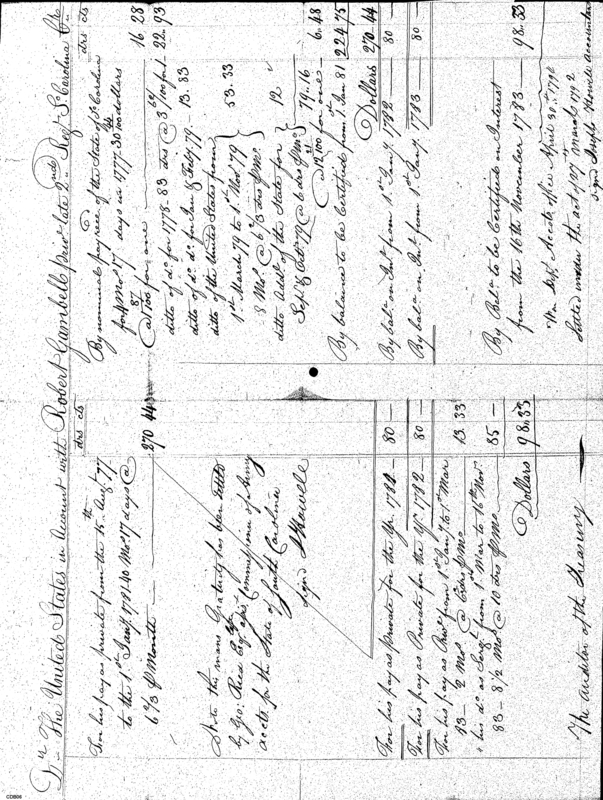 Dr The United States in Account with Robert Gambell priv. late 2nd Regt So Carolina Cr
drs cts
For his pay as private from the 15th Augt 77
to the 1st Jany 1781 40 Mos 17 days @
6 2/3 P Month 270 44
Note this mans Gratuity has been settd
by Geo: Reid Esqr Commissioner of Army
acctts for the State of South Carolina
signd J Howell
For his pay as Private for the Yr 1781 — 80 —
For his pay as Private for the Yr 1782 — 80 —
For his pay as Privt from 1st Jany to 1st Mar
83 — 2 Mos @ P Mo 13.33
his do as Sergt from 1st Mar to 16th Novr
83 — 8 1/2 Mos @ 10 drs P Mo 85 —
Dollars 98.33
The Auditor of the Treasury
drs cts
By nominal pay recd of the State of So Carolina
for 4 Mos 17 days in 1777. 30 dollars
@ 100 for one 16 28
ditto of do for 1778 83 drs @ 3 for 1 22.93
ditto of do for Jan & Feby 79. 13.83
ditto of the United States from
1st March 79 to 1st Novr 79
8 Mos @ 6 2/3 drs P Mo 53.33
ditto Addl of the State for
Sept & Octr 79 @ 6 drs P Mo 12
79.16
@ 12.100 for one 6.48
By balance to be Certified from 1st Jan 81 224 75
Dollars 270 44
By bala on Int from 1st Jany 1782 — 80 —
By bala on Int from 1st Jany 1783 — 80 —
By Bala to be Certified on Interest
from the 16th November 1783 — 98.33
Accots office April 30th 1792
Settled under the act of 27th March 1792
signd Joseph Howell accountant
CDB06